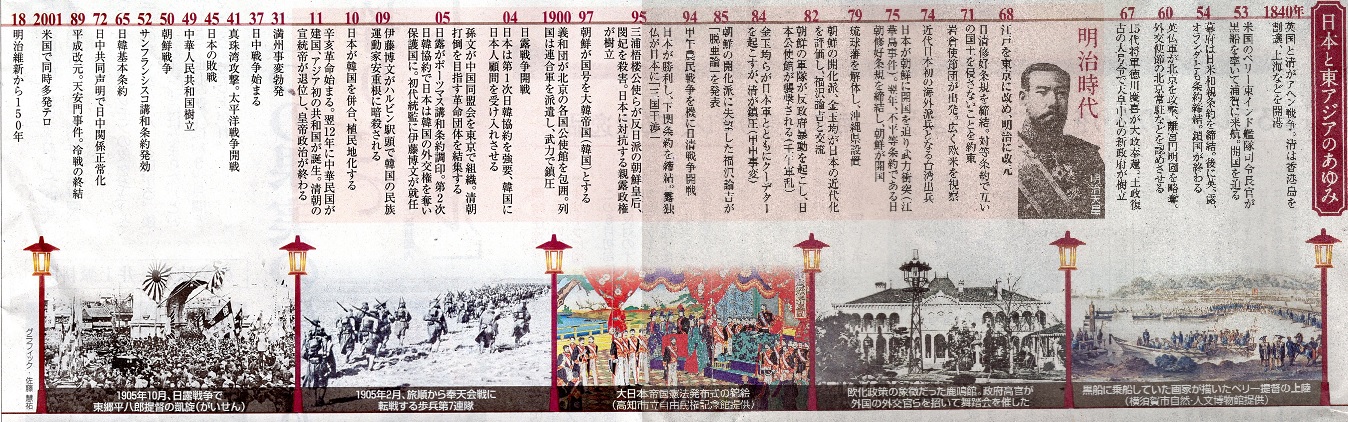 日本と東アジアのあゆみ
1840年
英国と清がアヘン戦争。清は香港島を
割譲、上海などを開港
53
米国のペリー東インド艦隊司令長官が
黒船を率いて浦賀に来航。開国を迫る
54
幕府は日米和親条約を締結。後に英、露、
オランダとも条約締結。鎖国が終わる
60
英仏軍が北京を攻略。離宮円明園を略奪。
外交使節の北京常駐などを認めさせる
67
15代将軍徳川慶喜が大政奉還。王政復
古の大号令で天皇中心の新政府が樹立
明治時代
明治天皇
68
江戸を東京に改め、明治に改元
71
日清修好条規を締結。対等条約で互い
の国土を侵さないことを約束
岩倉使節団が出発。広く欧米を視察
74
近代日本初の海外派兵となる台湾出兵
75
日本が朝鮮に開国を迫り武力衝突（江
華島事件）。翌年、不平等条約である日
朝修好条規を締結し、朝鮮が開国
79
琉球藩を解体し、沖縄県設置
82
朝鮮の開化派、金玉均が日本の近代化
を評価し、福沢諭吉と交流
朝鮮の軍隊が反政府暴動を起こし、日
本公使館が襲撃される（壬午軍乱）
84
金玉均らが日本軍とともにクーデター
を起こすが、清が鎮圧（甲申事変）
85
朝鮮の開化派に失望した福沢諭吉が
「脱亜論」を発表
94
甲午農民戦争を機に日清戦争開戦
95
日本が勝利し、下関条約を締結。露独
仏が日本に「三国干渉」
三浦梧楼公使らが反日派の朝鮮皇后、
閔妃を殺害。日本に対抗する親露政権
が樹立
97
朝鮮が国号を大韓帝国（韓国）とする
1900
義和団が北京の各国公使館を包囲。列
国は連合軍を派遣し、武力で鎮圧
04
日露戦争開戦
日本は第1次日韓協約を強要、韓国に
日本人顧問を受け入れさせる
05
孫文が中国同盟会を東京で組織。清朝
打倒を目指す革命団体を結集する
日露がポーツマス講和条約調印。第2次
日韓協約で日本は韓国の外交権を奪い
保護国に。初代統監に伊藤博文が就任
09
伊藤博文がハルビン駅頭で韓国の民族
運動家安重根に暗殺される
10
日本が韓国を併合、植民地化する
11
辛亥革命始まる。翌12年に中華民国が
建国、アジア初の共和国が誕生。清朝の
宣統帝が退位し、皇帝政治が終わる
31
満州事変勃発
37
日中戦争始まる
41
真珠湾攻撃。太平洋戦争開戦
45
日本の敗戦
49
中華人民共和国樹立
50
朝鮮戦争
52
サンフランシスコ講和条約発効
65
日韓基本条約
72
日中共同声明で日中関係正常化
89
平成改元。天安門事件、冷戦の終結
2001
米国で同時多発テロ
18
明治維新から150年
黒船に乗船していた画家が描いたペリー提督の上陸
（横須賀市自然・人文博物館提供）
欧化政策の象徴だった鹿鳴館。政府高官が
外国の外交官らを招いて舞踏会を催した
大日本帝国憲法発布式の錦絵
（高知市立自由民権記念館提供）
1905年2月、旅順から奉天会戦に
転戦する歩兵第7連隊
1905年10月、日露戦争で
東郷平八郎提督の凱旋（がいせん）
グラフィック 佐藤慧祐